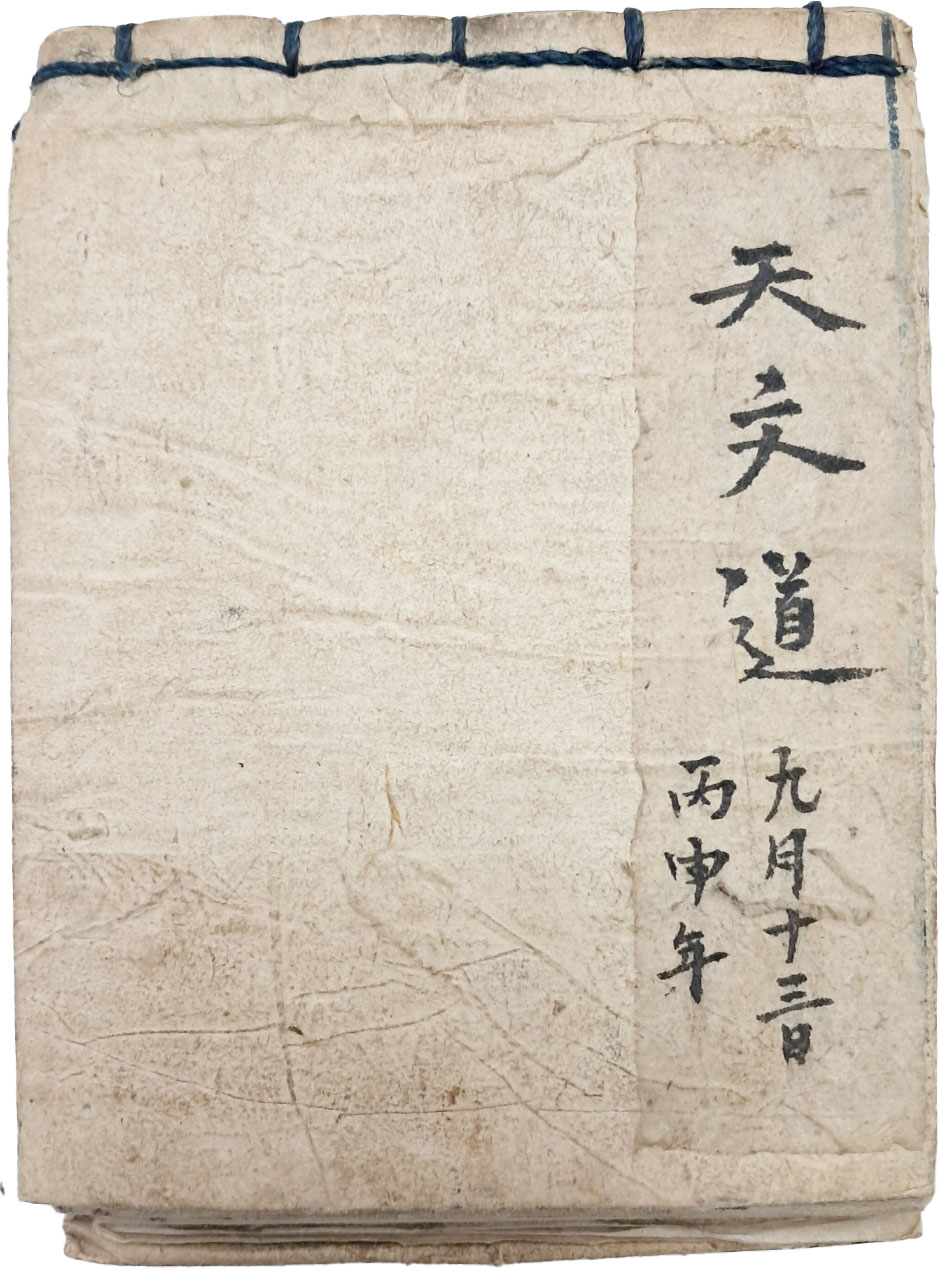 天文道
九月十三日
丙申年